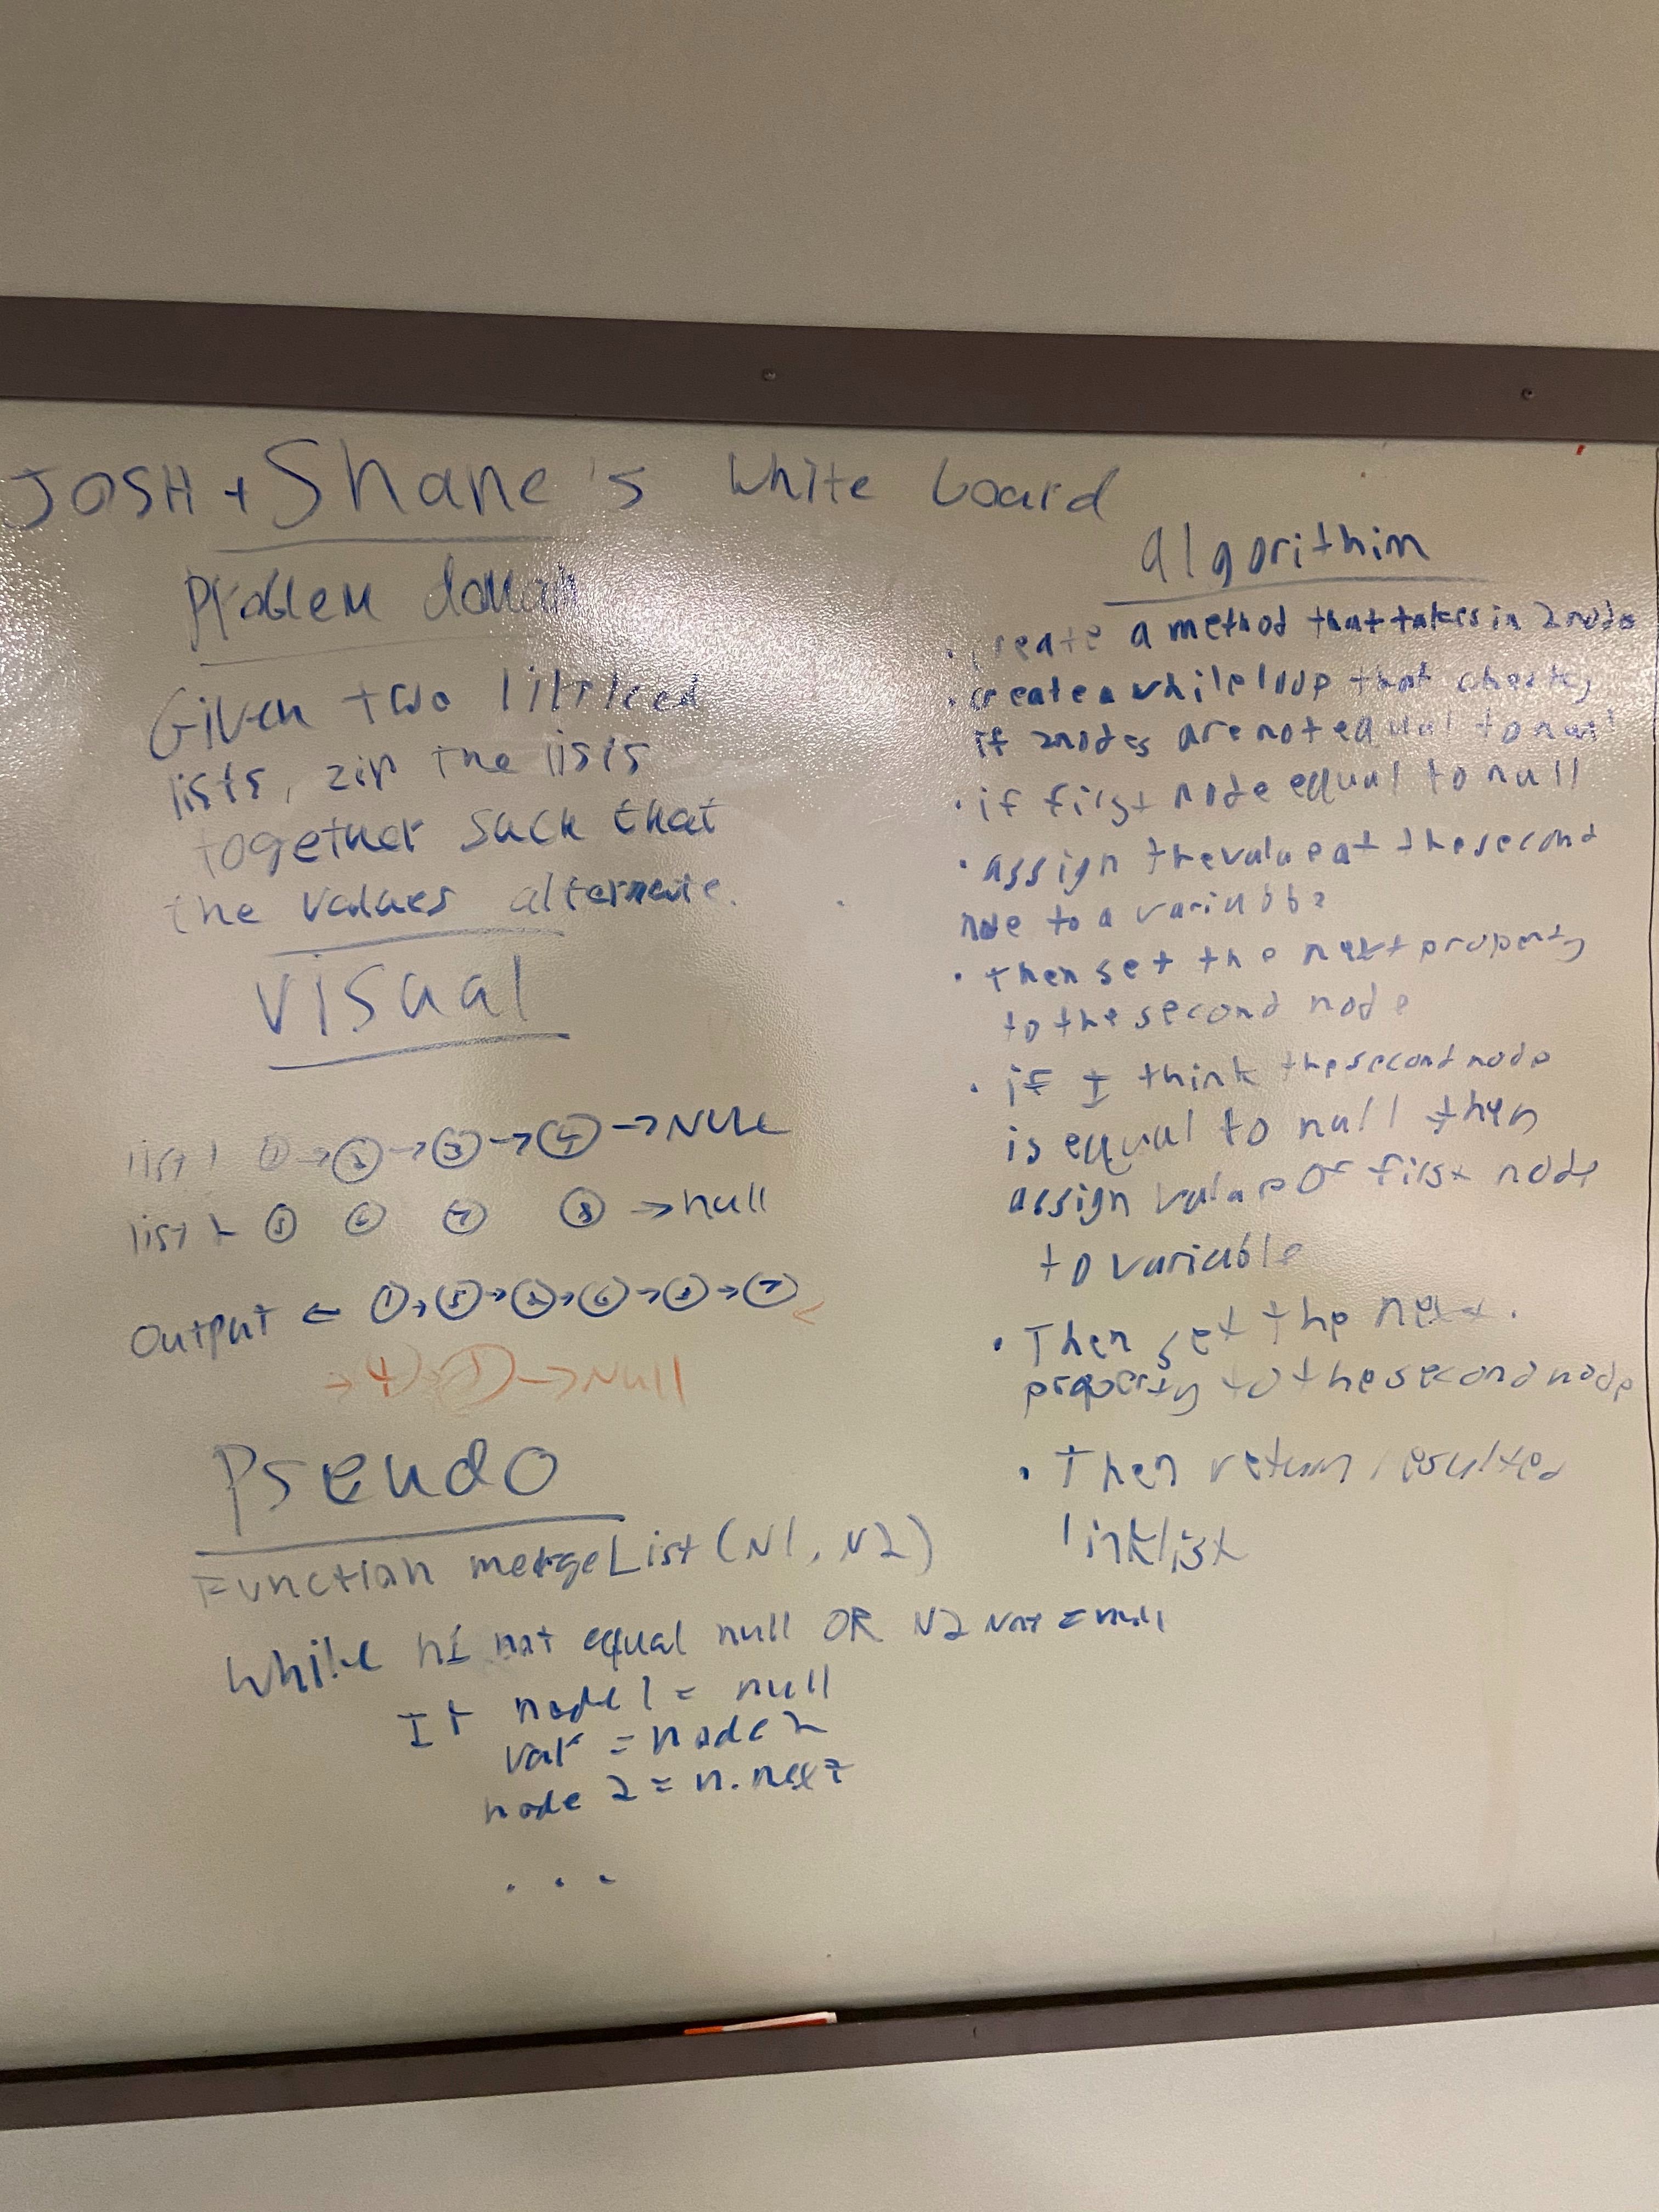 JOSH + Shane's White board
Problem domain
Given two linked
lists, zip the lists
together such that
the values alternate.
Visual
list 1 ① → ② → ③ → ④ → NULL
list 2 ⑤ ⑥ ⑦ ⑧ → null
Output ← ① → ⑤ → ② → ⑥ → ③ → ⑦
→ 4 → → Null
Pseudo
Function mergeList (N1, N2)
While n1 not equal null OR N2 not = null
If node 1 = null
var = node 2
node 2 = n.next
. . .
algorithim
• create a method that takes in 2 nodes
• create a while loop that checks
if 2nodes are not equal to null
• if first node equal to null
• assign the value at the second
node to a variable
• then set the next property
to the second node
• if I think the second node
is equal to null then
assign value of first node
to variable
• Then set the next.
property to the second node
• Then return resulted
linklist